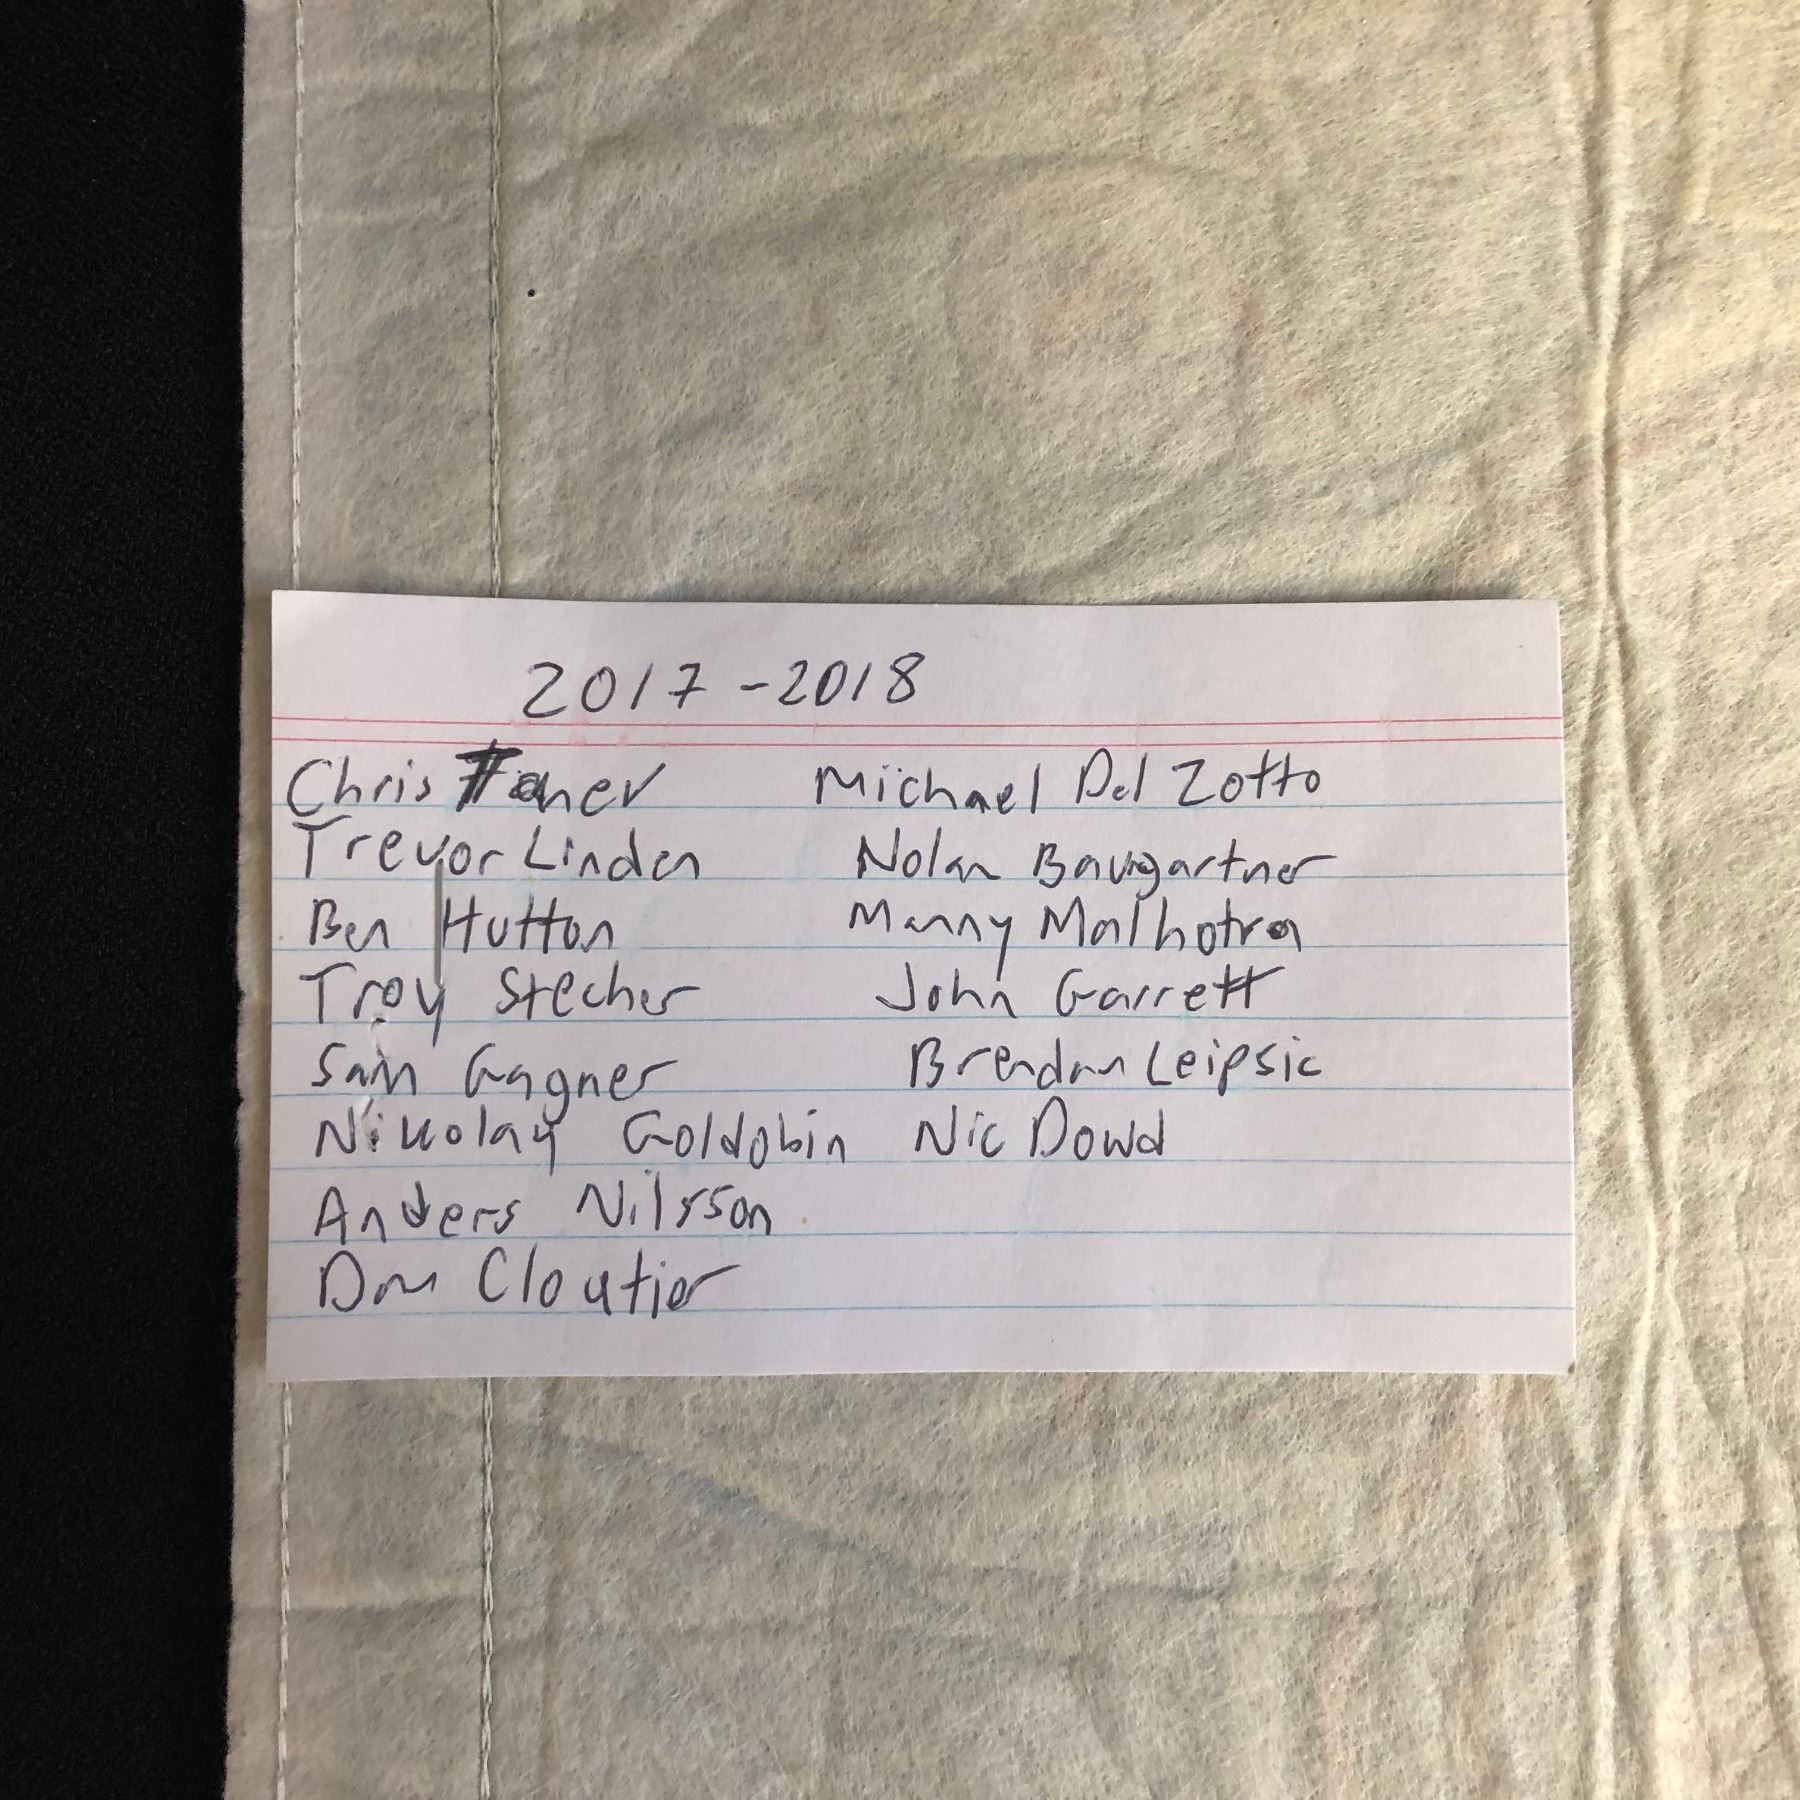 2017-2018
Chris Taner
Trevor Linden
Ben Hutton
Troy Stecher
Sam Gagner
Nikolay Goldobin
Anders Nilsson
Dan Cloutier
Michael Del Zotto
Nolan Baumgartner
Manny Malhotra
John Garrett
Brendan Leipsic
Nic Dowd